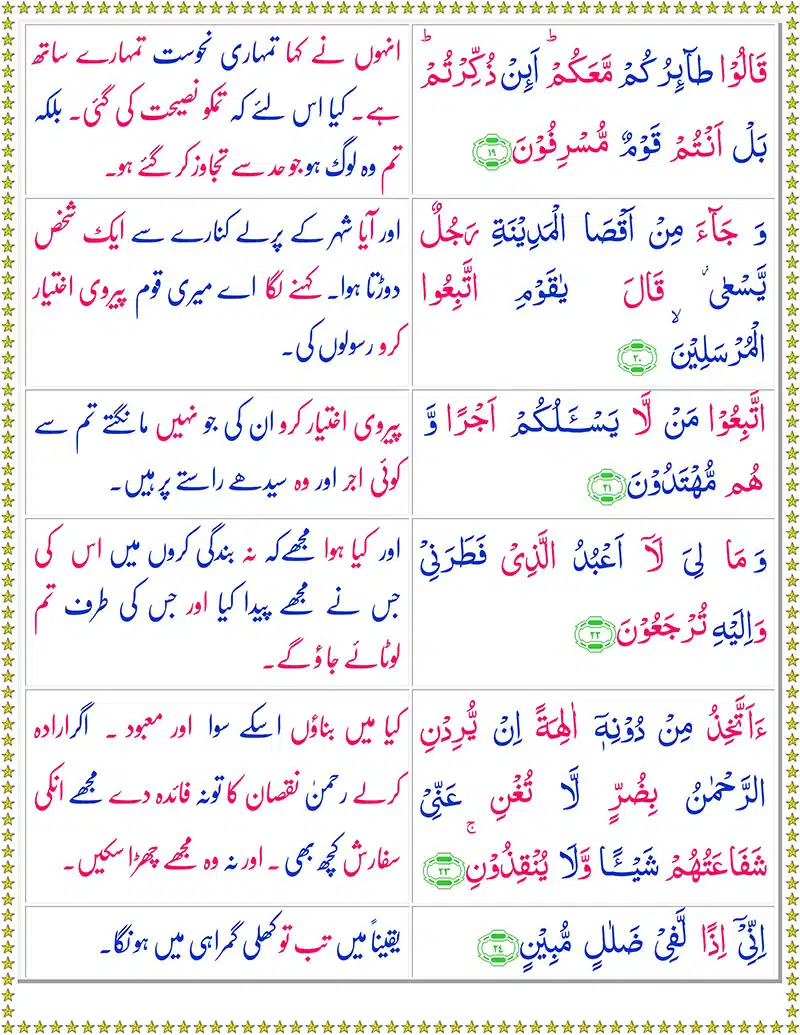 قَالُوْا طَآئِرُكُمْ مَّعَكُمْ ؕ اَئِنْ ذُكِّرْتُمْ ؕ
بَلْ اَنْتُمْ قَوْمٌ مُّسْرِفُوْنَ ﴿۱۹﴾
انہوں نے کہا تمہاری نحوست تمہارے ساتھ
ہے۔ کیا اس لئے کہ تمکو نصیحت کی گئی۔ بلکہ
تم وہ لوگ ہو جو حد سے تجاوز کر گئے ہو۔
وَ جَآءَ مِنْ اَقْصَا الْمَدِيْنَةِ رَجُلٌ
يَّسْعٰى ۫ قَالَ يٰقَوْمِ اتَّبِعُوا
الْمُرْسَلِيْنَ ۙ ﴿۲۰﴾
اور آیا شہر کے پرلے کنارے سے ایک شخص
دوڑتا ہوا۔ کہنے لگا اے میری قوم پیروی اختیار
کرو رسولوں کی۔
اتَّبِعُوْا مَنْ لَّا يَسْـَٔـلُكُمْ اَجْرًا وَّ
هُم مُّهْتَدُوْنَ ﴿۲۱﴾
پیروی اختیار کرو ان کی جو نہیں مانگتے تم سے
کوئی اجر اور وہ سیدھے راستے پر ہیں۔
وَ مَا لِىَ لَآ اَعْبُدُ الَّذِىْ فَطَرَنِىْ
وَاِلَيْهِ تُرْجَعُوْنَ ﴿۲۲﴾
اور کیا ہوا مجھے کہ نہ بندگی کروں میں اس کی
جس نے مجھے پیدا کیا اور جس کی طرف تم
لوٹائے جاؤ گے۔
ءَاَتَّخِذُ مِنْ دُوْنِهٖٓ اٰلِهَةً اِنْ يُّرِدْنِ
الرَّحْمٰنُ بِضُرٍّ لَّا تُغْنِ عَنِّىْ
شَفَاعَتُهُمْ شَيْـًٔـا وَّلَا يُنْقِذُوْنِ ۚ ﴿۲۳﴾
کیا میں بناؤں اسکے سوا اور معبود ۔ اگر ارادہ
کرلے رحمنٰ نقصان کا تو نہ فائدہ دے مجھے انکی
سفارش کچھ بھی ۔ اور نہ وہ مجھے چھڑا سکیں۔
اِنِّىْٓ اِذًا لَّفِىْ ضَلٰلٍ مُّبِيْنٍ ﴿۲۴﴾
یقیناً میں تب تو کھلی گمراہی میں ہونگا۔